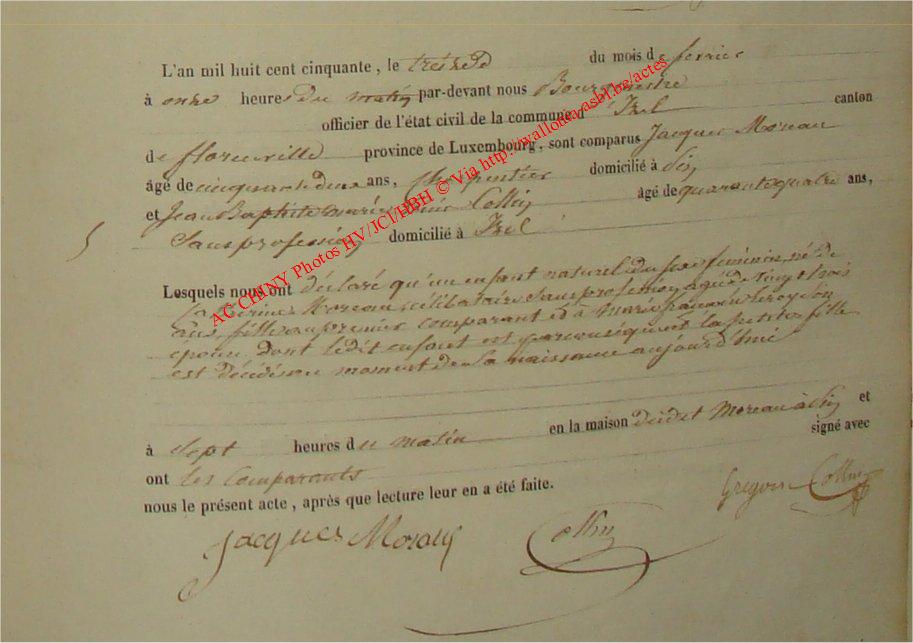 L'an mil huit cent cinquante, le treize du mois de fevrier
à onze heures du matin par-devant nous Bourgmestre
officier de l'état civil de la commune d'Izel canton
de florenville province de Luxembourg, sont comparus Jacques Moreau
âgé de cinquante deux ans, Charpentier domicilié à
et Jean Baptiste marie Collin âgé de quarante quatre ans,
5
Sans profession domicilié à Izel
Lesquels nous ont déclaré qu'un enfant naturel du sexe féminin, né de
Catherine Moreau, célibataire, Sans profession, agée de vingt trois
ans, fille au premier comparant et à marie
épouse, dont ledit enfant est par conséquent la petite fille
est décédé au moment de Sa naissance aujourd'hui
à Sept heures du matin en la maison dudit Moreau à et
ont les Comparants signé avec
nous le présent acte, après que lecture leur en a été faite.
Jacques Moraux Collin Gregoir Collin
AC CHINY Photos HV/JCI/HBH © Via http://wallonia.asbl.be/actes